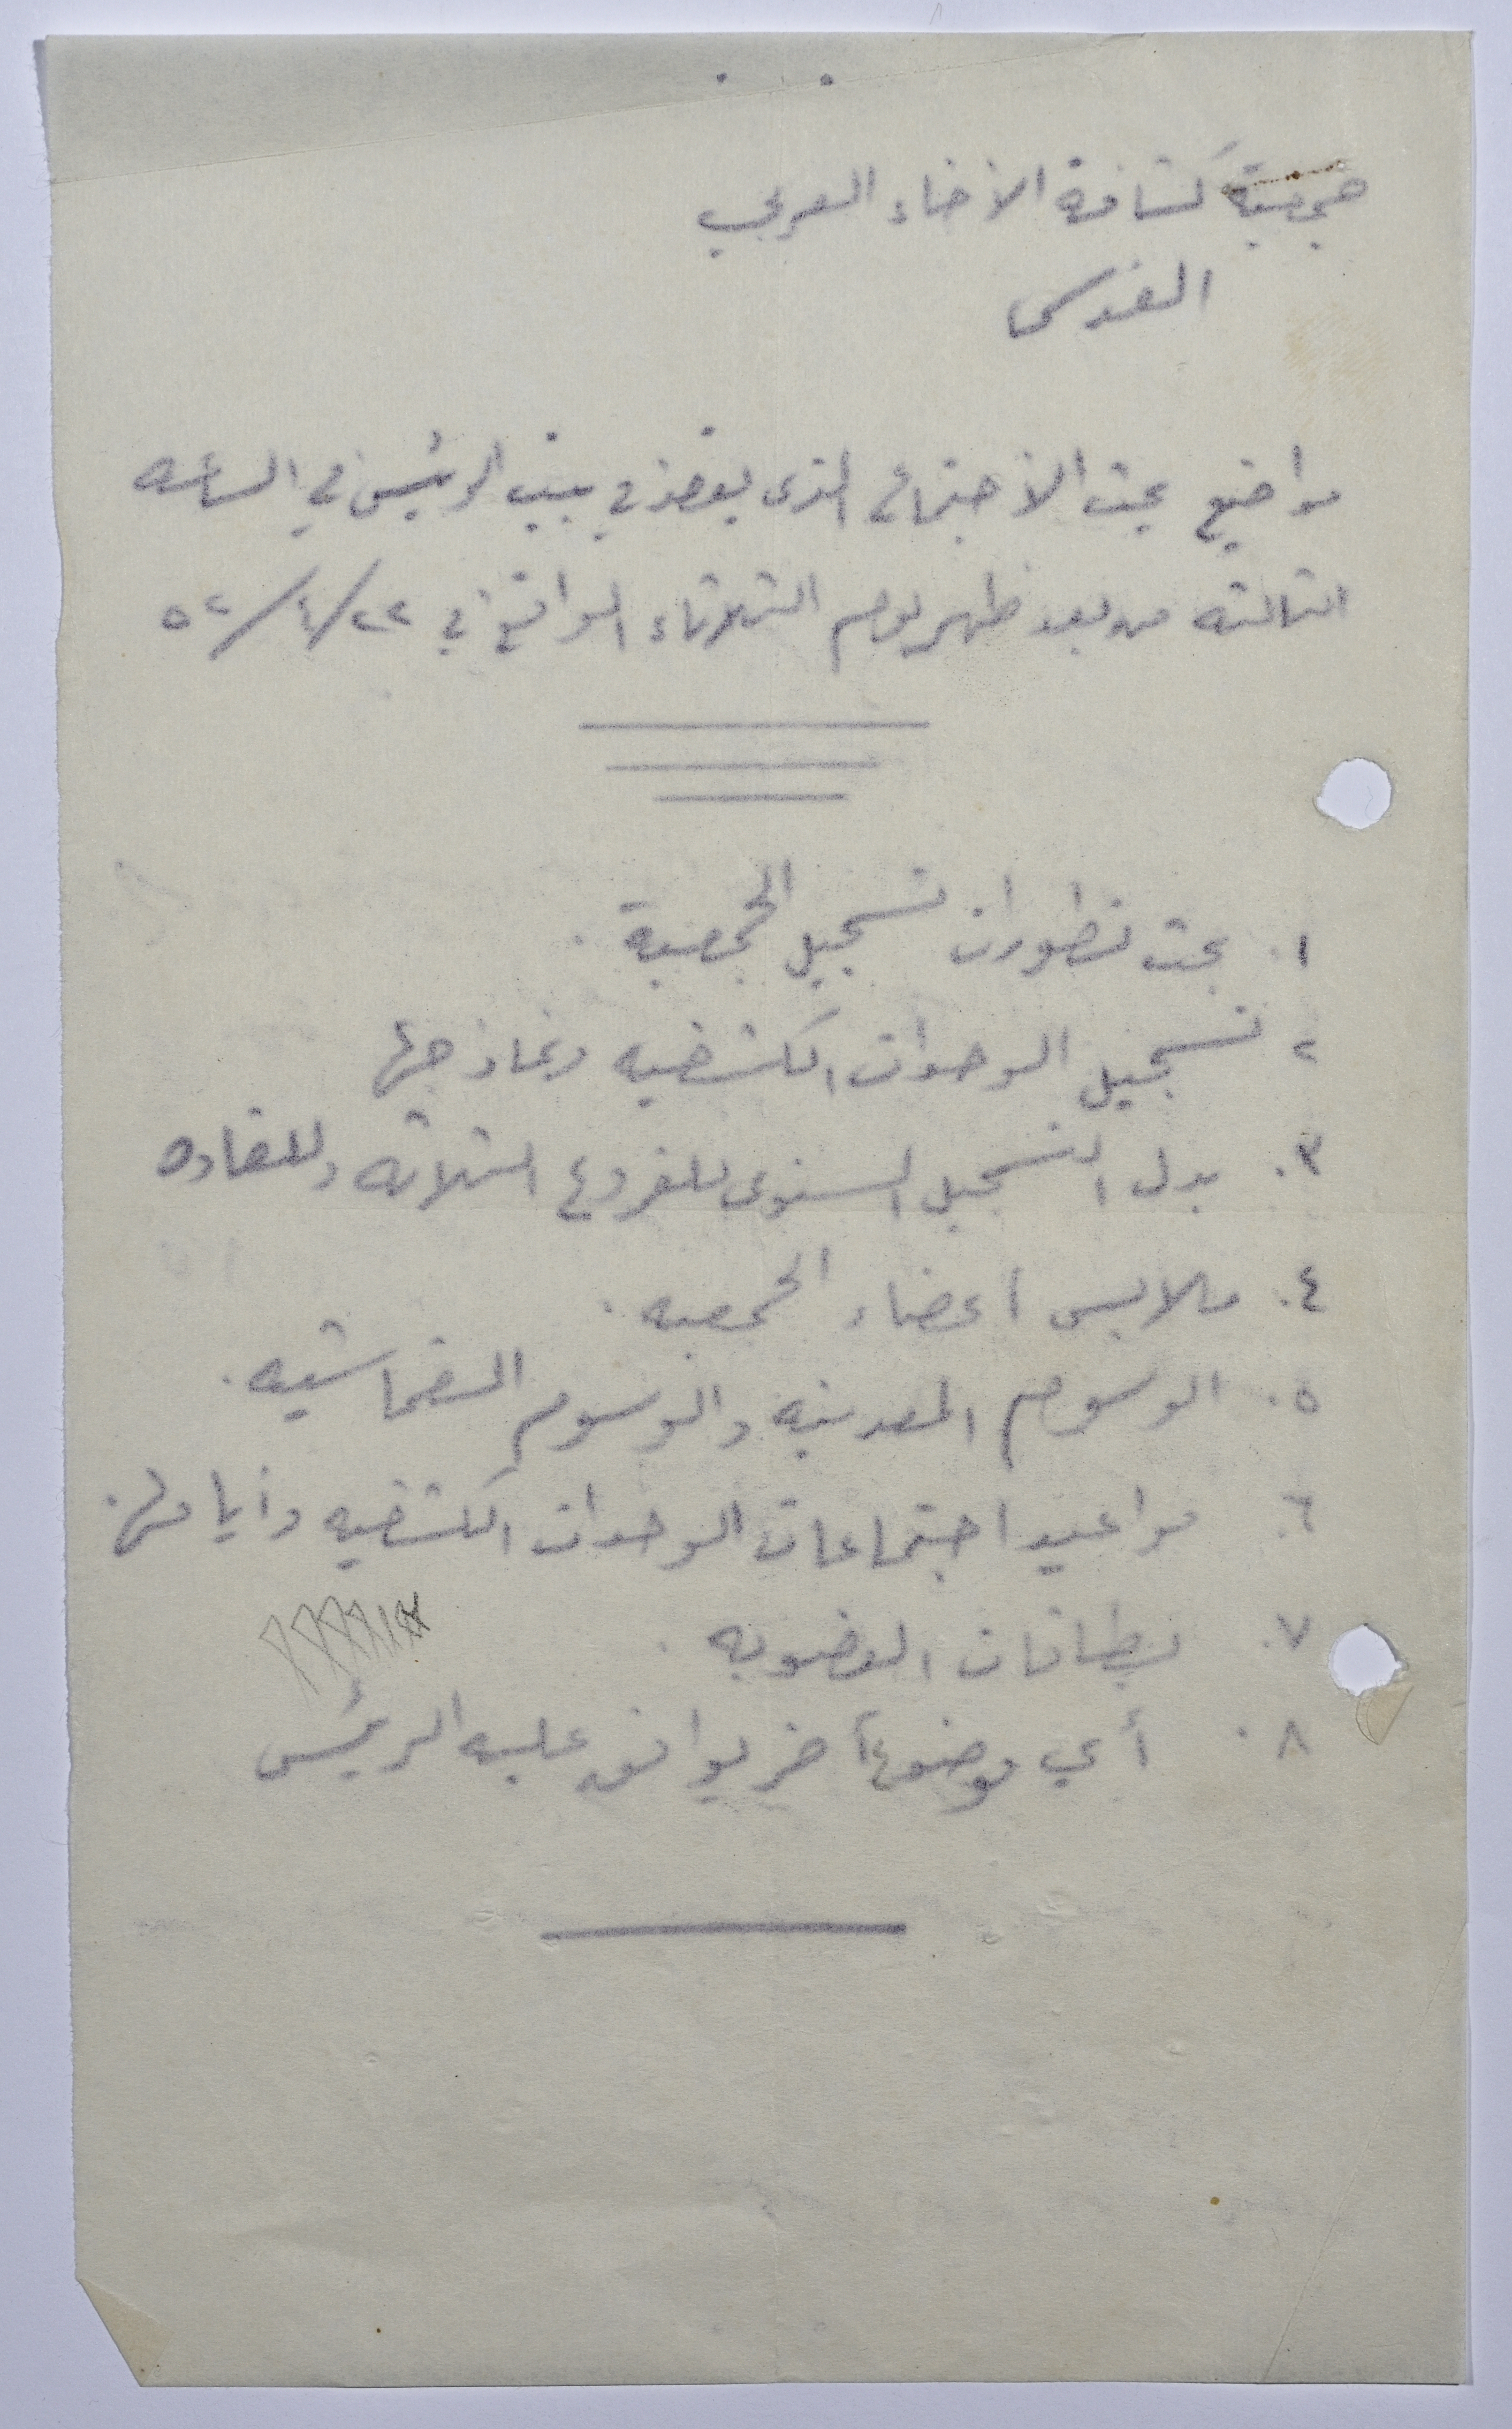 جمعية كشافة الاخاء العربي
القدس
مواضيع بحث الاجتماع الذي يعقد في بيت الرئيس في الساعه
الثالثه من بعد ظهر يوم الثلاثاء الواقع في ٢٢/٤/٥٢
١. بحث تطورات تسجيل الجمعية.
٢ تسجيل الوحدات الكشفيه ونماذجها
٣. بدل التسجيل السنوي للفروع الثلاثه وللقاده
٤. ملابس اعضاء الجمعيه.
٥. الوسوم المعدنيه والوسوم القماشيه.
٦. مواعيد اجتماعات الوحدات الكشفيه وأيامها.
٧. بطاقات العضويه.
٨. أي موضوع آخر يوافق عليه الرئيس